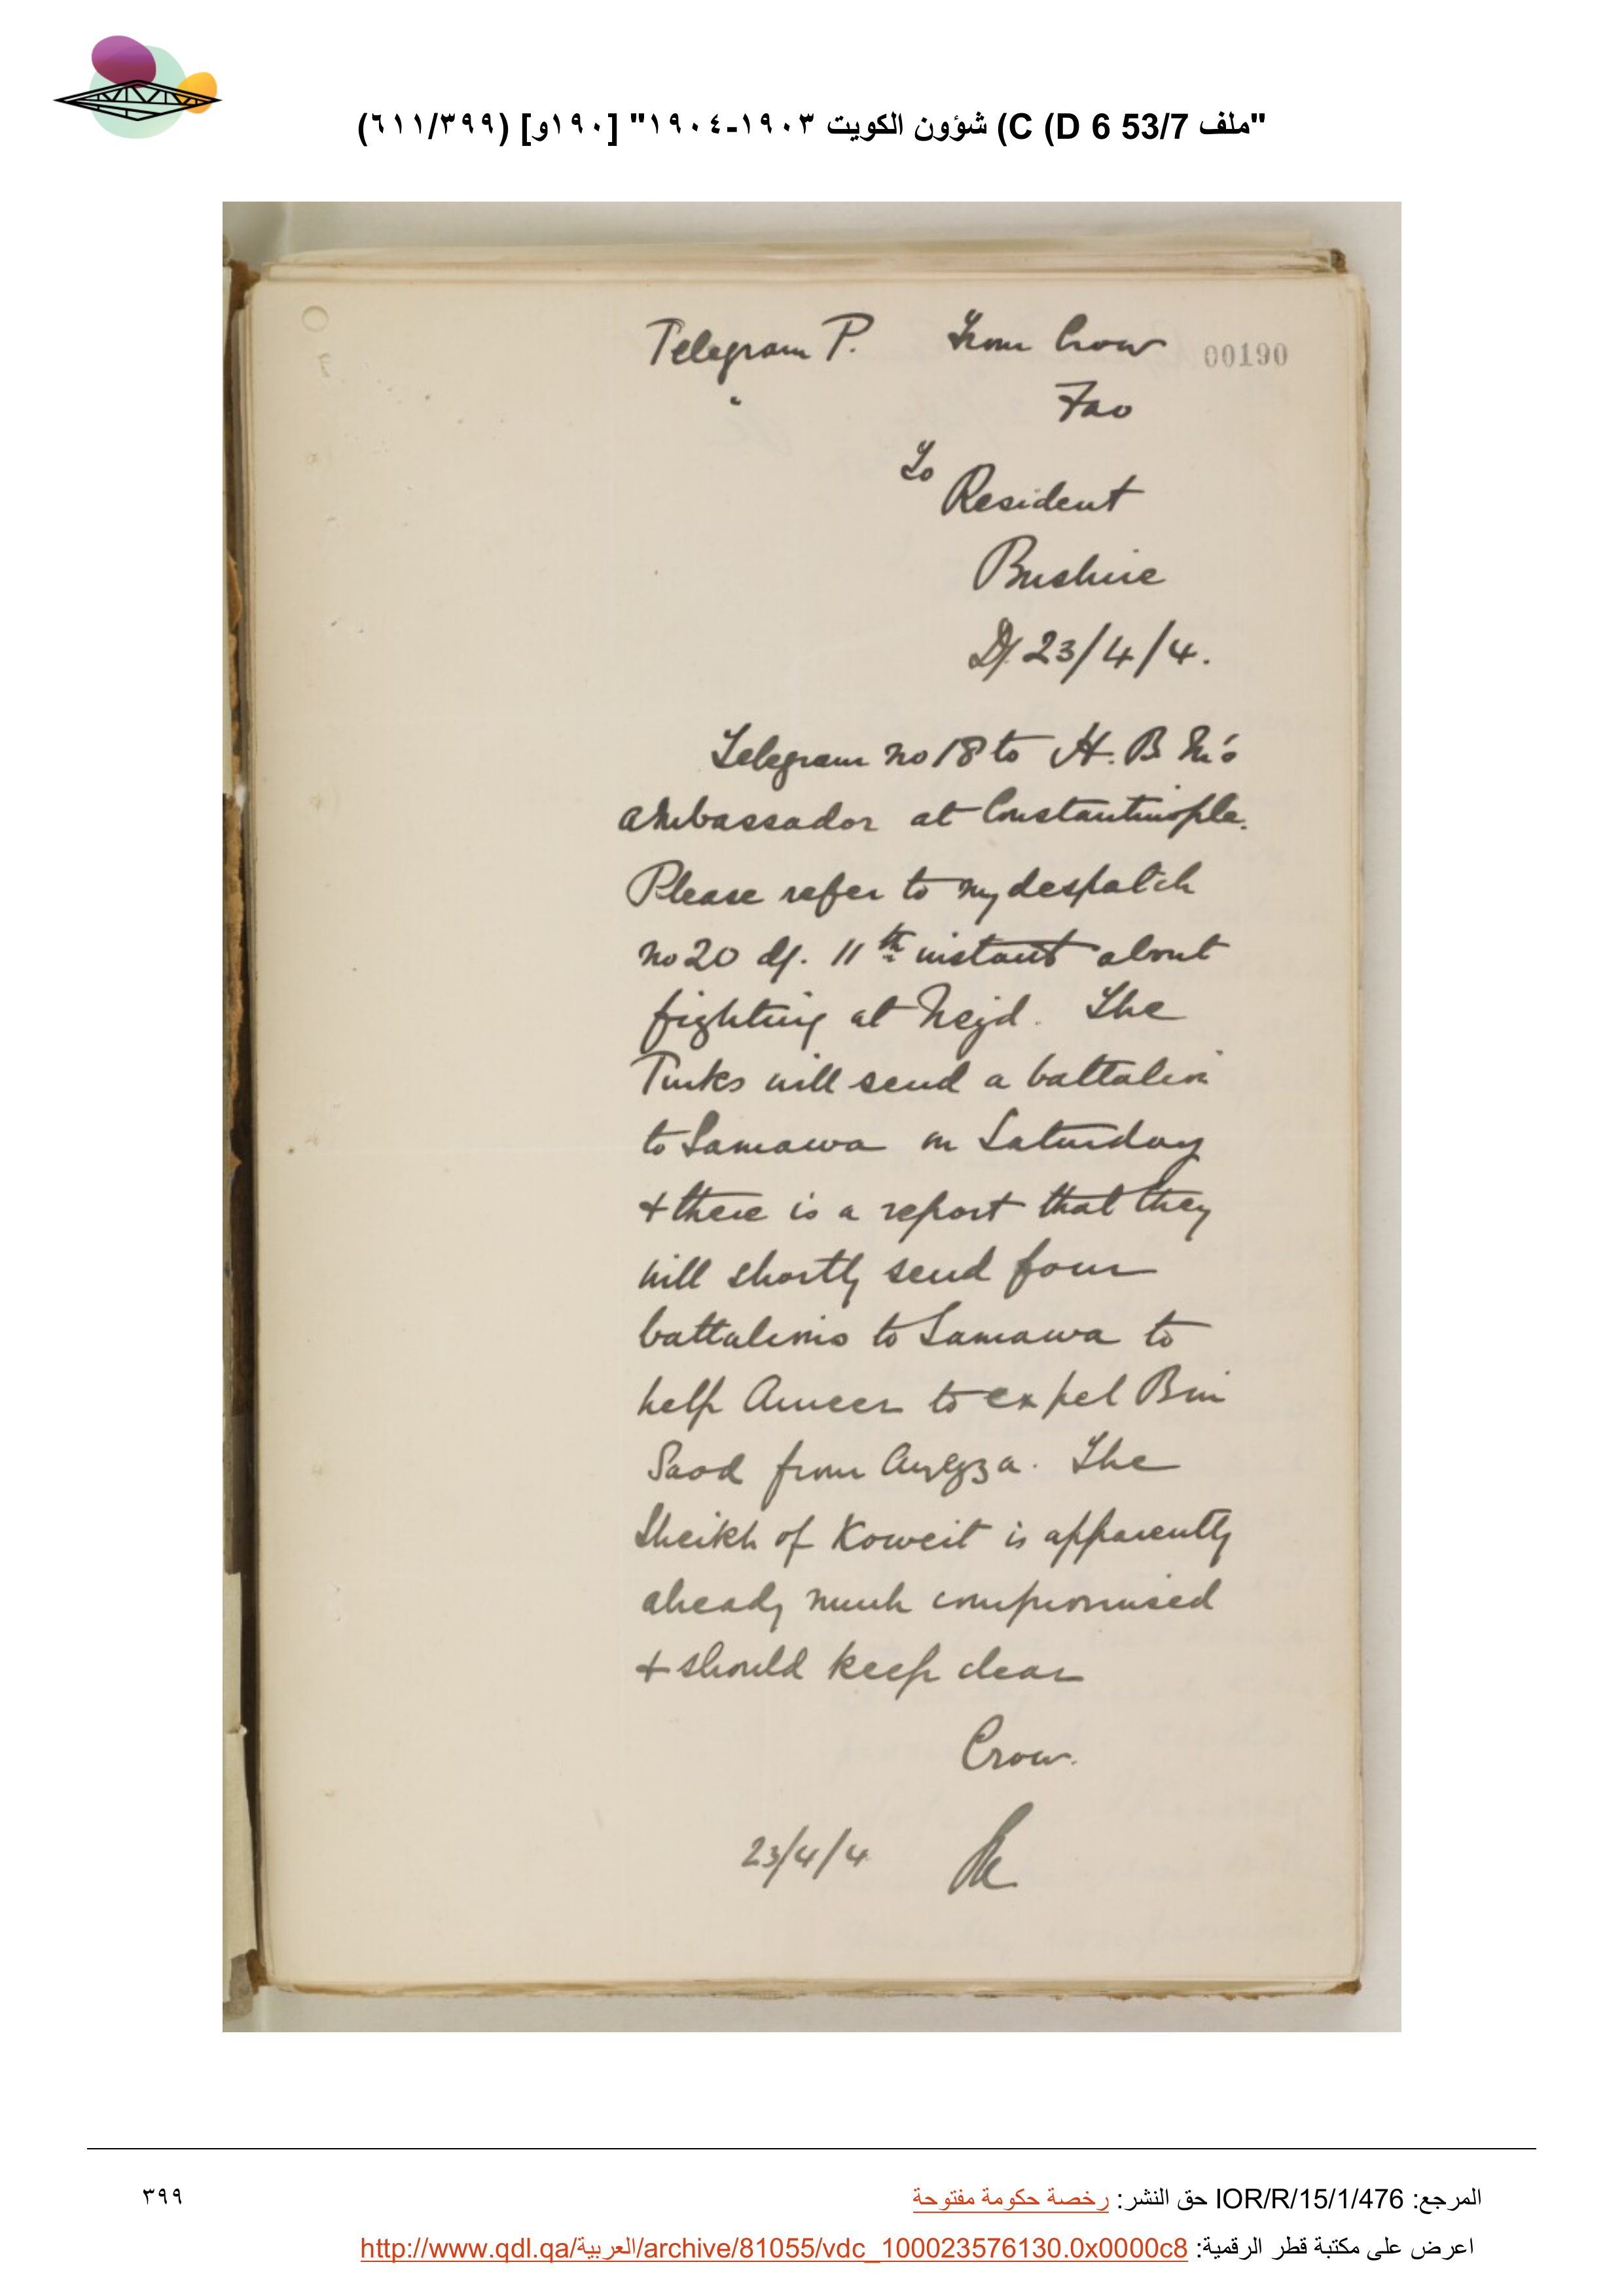 "ملف 53/7 C (D 6) شؤون الكويت ١٩٠٣-١٩٠٤" [١٩٠و] (٦١١/٣٩٩)
Telegram P. From Crow
00190
Fao
To
Resident
Bushire
D/ 23/4/4.
Telegram no 18 to H. B M's
Ambassador at Constantinople.
Please refer to my despatch
no 20 d/. 11th instant about
fighting at Nejd. The
Turks will send a battalion
to Samawa on Saturday
+ there is a report that they
will shortly send four
battalions to Samawa to
help Ameer to expel Bin
Saod from Aneyza. The
Sheikh of Koweit is apparently
already much compromised
+ should keep clear
Crow.
23/4/4
المرجع: IOR/R/15/1/476 حق النشر: رخصة حكومة مفتوحة
٣٩٩
اعرض على مكتبة قطر الرقمية: http://www.qdl.qa/العربية/archive/81055/vdc_100023576130.0x0000c8